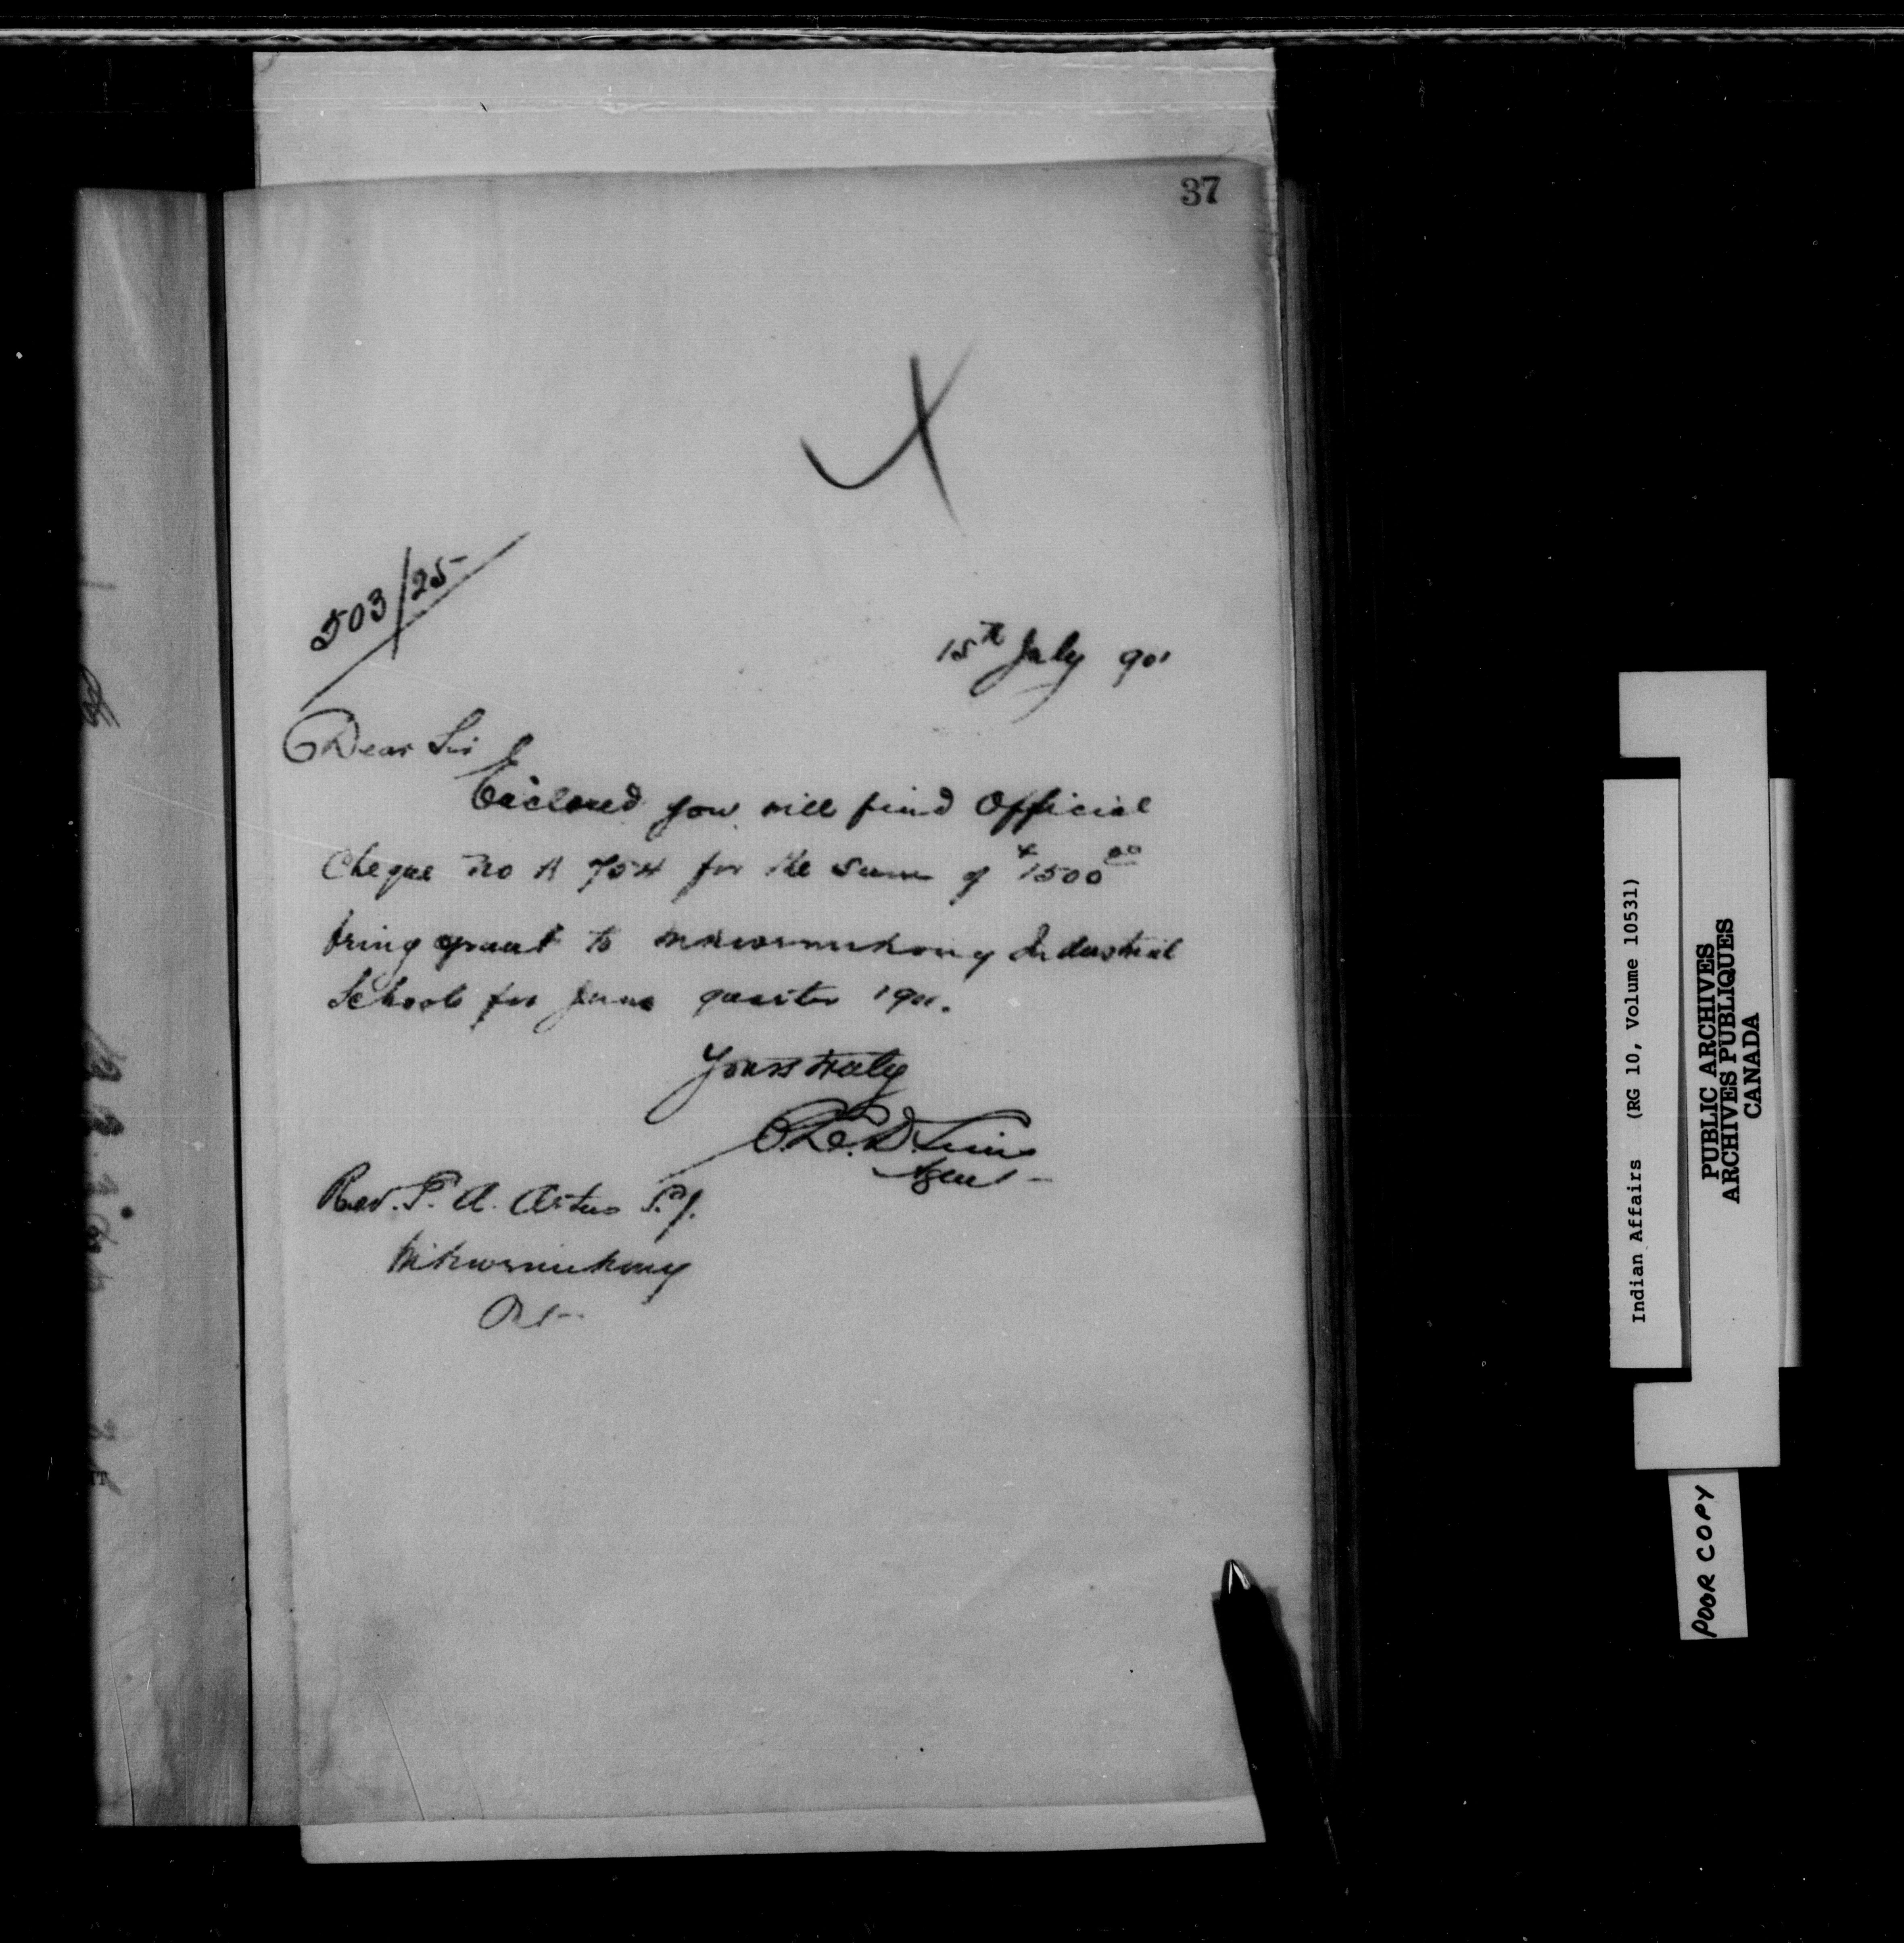 37
503/25
15th July 901
Dear Sir
Enclosed you will find Official
Cheque No A 754 for the sum of $1500 00
being grant to Mikwemikong Industrial
Schools for June quarter 1901.
Yours truly
Agent
Rev. P. A. Artus S.J.
Mikwemikong
Ont
Indian Affairs (RG 10, Volume 10531)
PUBLIC ARCHIVES
ARCHIVES PUBLIQUES
CANADA
POOR COPY